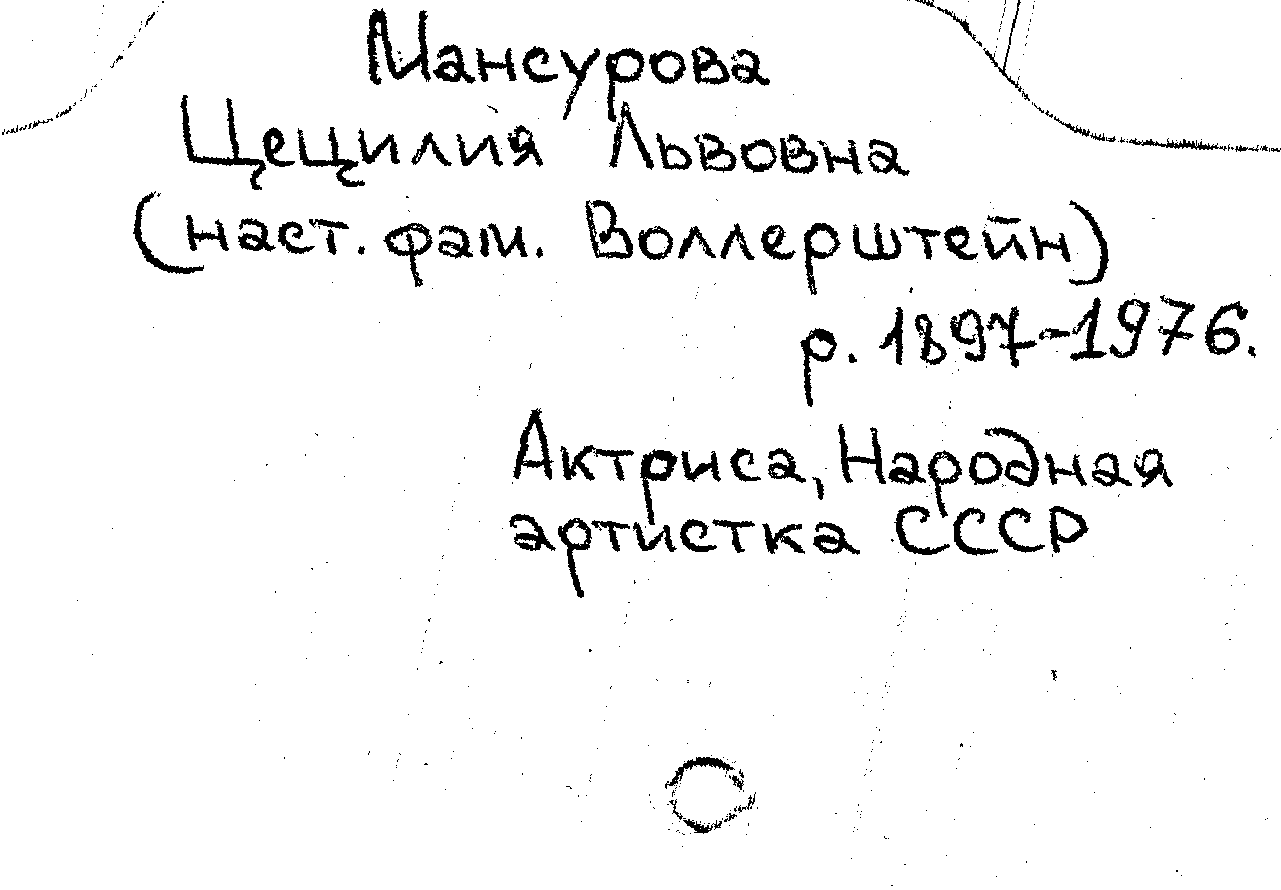 Мансурова
Цецилия Львовна
(наст. фам. Воллерштейн)
р. 1897-1976.
Актриса, Народная
артистка СССР